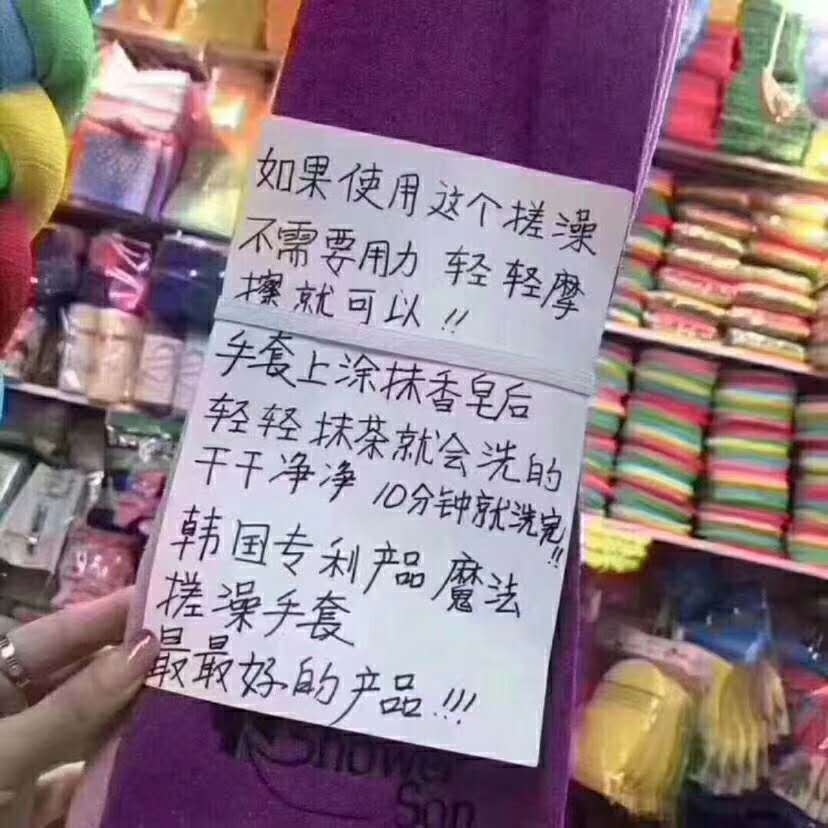 如果使用这个搓澡
不需要用力 轻轻摩
擦就可以!!
手套上涂抹香皂后
轻轻抹茶就会洗的
干干净净 10分钟就洗完!!
韩国专利产品 魔法
搓澡手套
最最好的产品!!!
Shower
Son